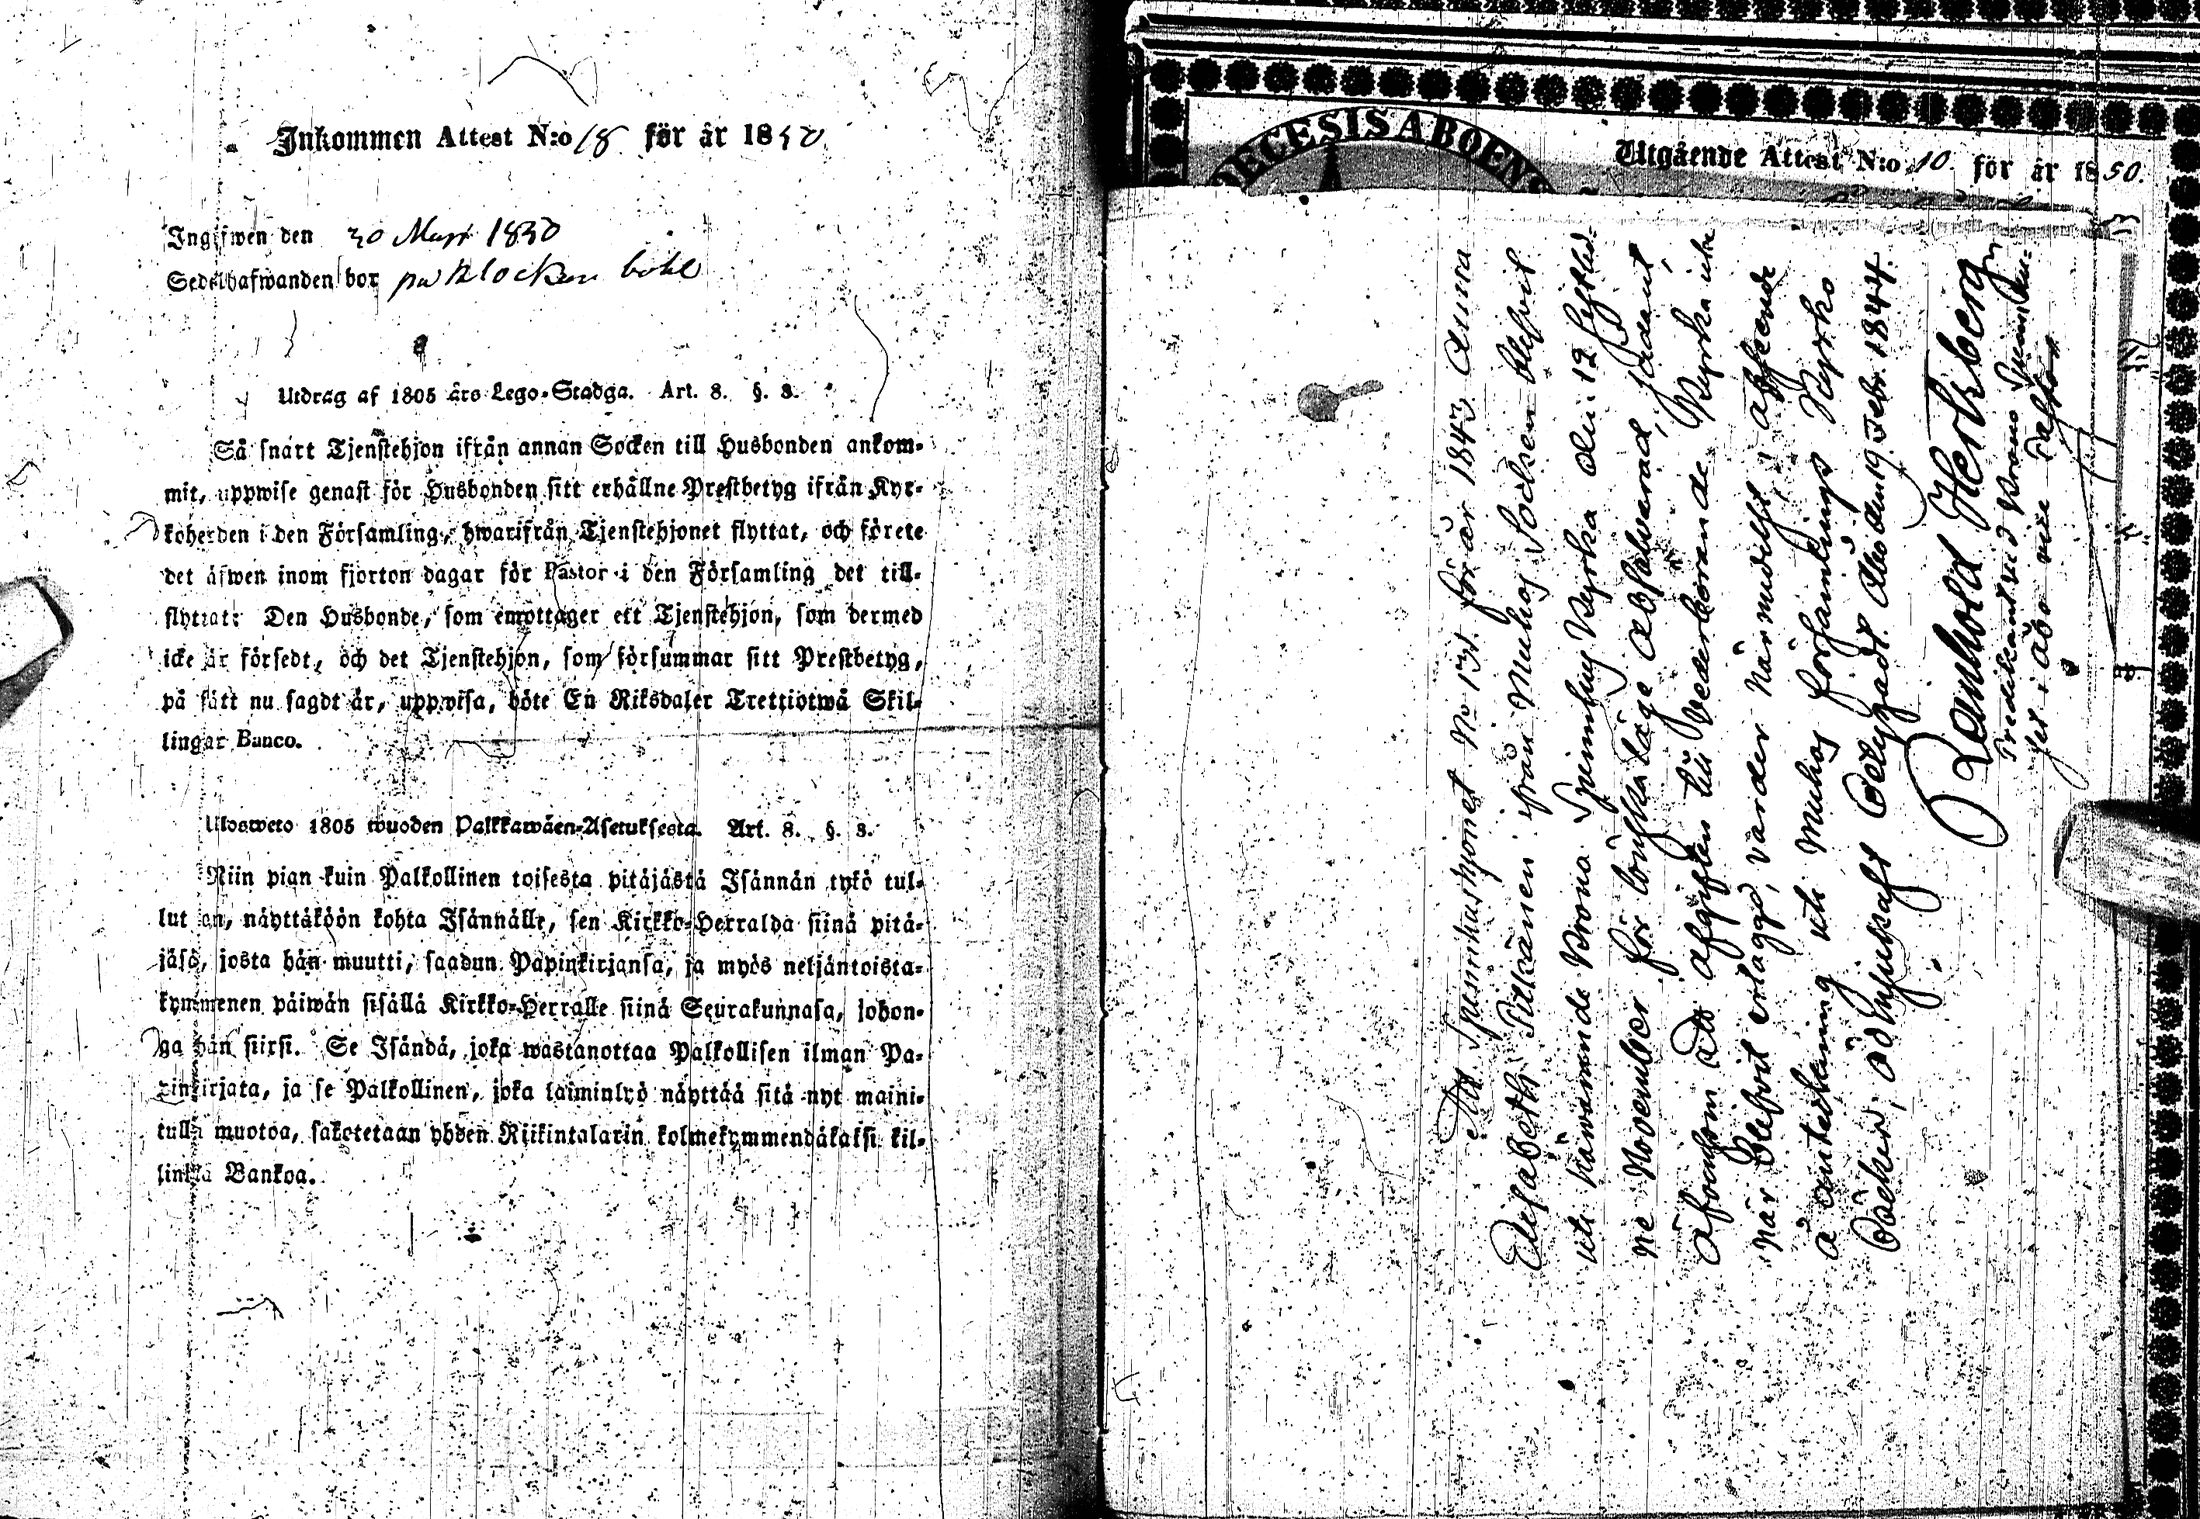 Inkommen Attest N:o 18 för år 1850
Ingifwen den 30 Mars 1850
Sedelhafwanden bor på Klockars bohl
Utdrag af 1805 års Lego-Stadga. Art. 8. §. 3.
Så snart Tjenstehjon ifrån annan Socken till Husbonden ankom-
mit, uppwise genast för Husbonden sitt erhållne Prestbetyg ifrån Kyr-
koherden i den Församling, hwarifrån Tjenstehjonet flyttat, och förete
det äfwen inom fjorton dagar för Pastor i den Församling det till-
flyttat: Den Husbonde, som emottager ett Tjenstehjon, som dermed
icke är försedt, och det Tjenstehjon, som försummar sitt Prestbetyg,
på sätt nu sagdt är, uppwisa, böte En Riksdaler Trettiotwå Skil-
lingar Banco.
Ulosweto 1805 wuoden Palkkawäen-Asetuksesta. Art. 8. §. 3.
Niin pian kuin Palkollinen toisesta pitäjästä Isännän tykö tul-
lut on, näyttäköön kohta Isännälle, sen Kirkko-Herralda siinä pitä-
jäsä, josta hän muutti, saadun Papinkirjansa, ja myös neljäntoista-
kymmenen päiwän sisällä Kirkko-Herralle siinä Seurakunnasa, johon-
ga hän siirsi. Se Isändä, joka wastanottaa Palkollisen ilman Pa-
pinkirjata, ja se Palkollinen, joka laiminlyö näyttää sitä nyt maini-
tulla muotoa, sakotetaan yhden Riikintalarin kolmekymmendäkaksi kil-
lingiä Bankoa.
DECESIS ABOENS
Utgående Attest N:o 10. för år 1850.
Att Spinnhushjonet No 131 för år 1843 Anna
Elisabeth Pitkänen ifrån Muhos Socken blifvit
uti härwarande Krono Spinnhus Kyrka den 12 sistlid-
ne November för lönskaläge Absolverad, sådant,
äfvensom att afgiften till vederbörande Kyrka icke
när blefvit erlagd, varder härmedelst, i afseende
å anteckning uti Muhos församlings Kyrko
Böcker, ödmjukast betygadt. Åbo den 19 Febr. 1844.
Reinhold Hertzberg
Predikant vid Krono Spinnhu-
set i Åbo vice Pastor